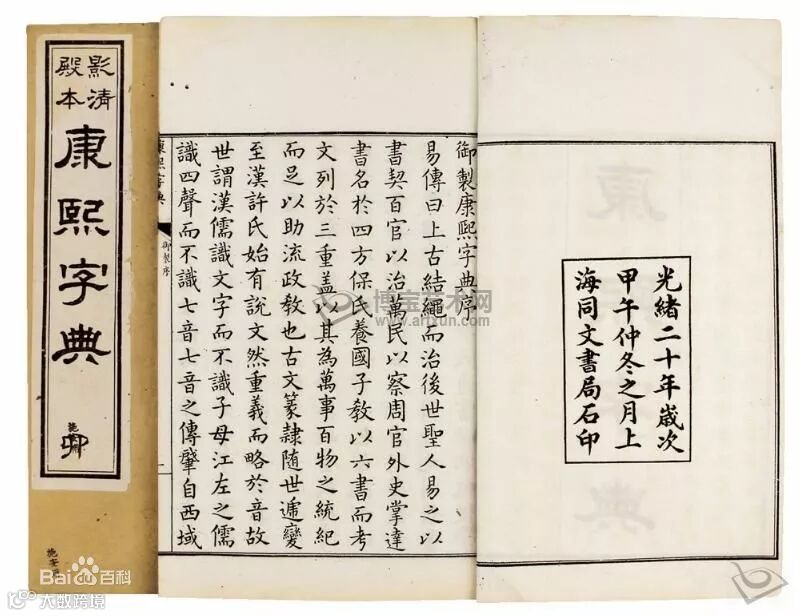 影清
殿本
康熙字典
卯
御製康熙字典序
易傳曰上古結繩而治後世聖人易之以
書契百官以治萬民以察周官外史掌達
書名於四方保氏養國子教以六書而考
文列於三重蓋以其為萬事百物之統紀
而足以助流政教也古文篆隸隨世遞變
至漢許氏始有說文然重義而略於音故
世謂漢儒識文字而不識子母江左之儒
識四聲而不識七音七音之傳肇自西域
康熙字典
御製序
一
光緒二十年歲次
甲午仲冬之月上
海同文書局石印
康熙字典
博宝艺术网
www.artxun.com
Baidu百科
大数跨境